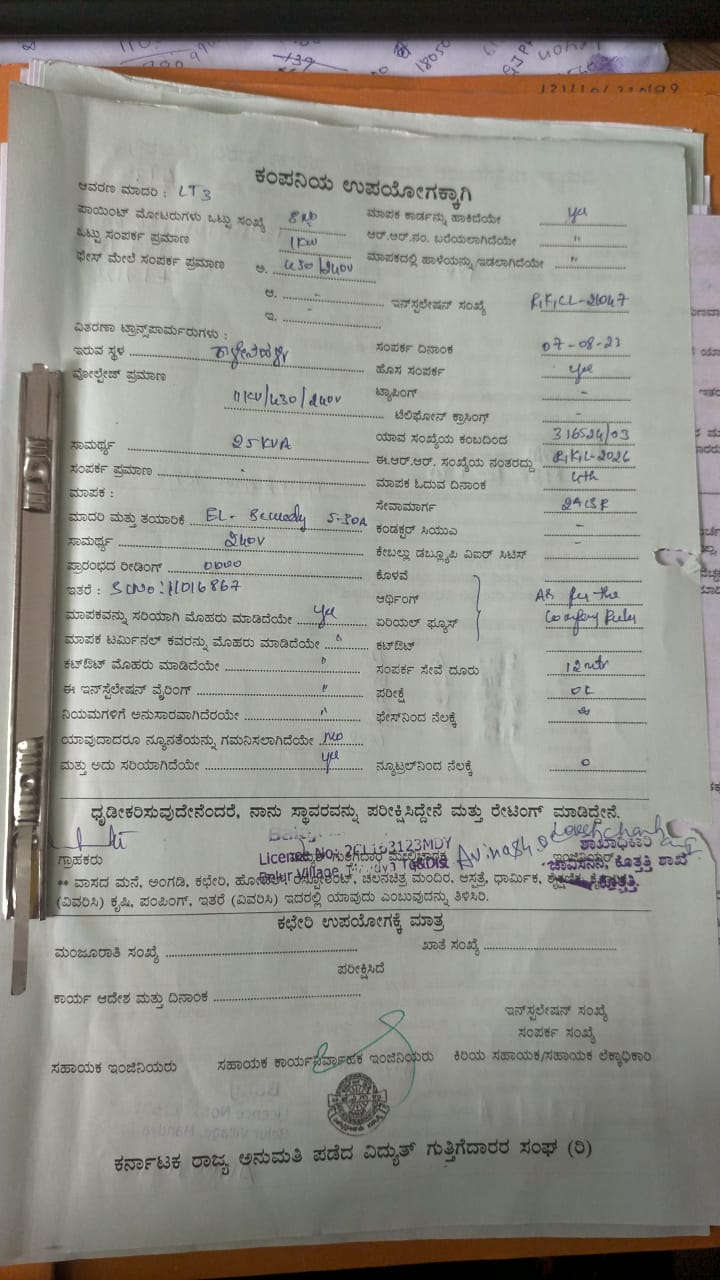 ಕಂಪನಿಯ ಉಪಯೋಗಕ್ಕಾಗಿ
ಆವರಣ ಮಾದರಿ : LT3
ಪಾಯಿಂಟ್ ಮೋಟರುಗಳು ಒಟ್ಟು ಸಂಖ್ಯೆ ಮಾಪಕ ಕಾರ್ಡನ್ನು ಹಾಕಿದೆಯೇ yes
ಒಟ್ಟು ಸಂಪರ್ಕ ಪ್ರಮಾಣ 1KW ಆರ್.ಆರ್.ನಂ. ಬರೆಯಲಾಗಿದೆಯೇ "
ಫೇಸ್ ಮೇಲೆ ಸಂಪರ್ಕ ಪ್ರಮಾಣ ಅ. 430/240V ಮಾಪಕದಲ್ಲಿ ಹಾಳೆಯನ್ನು ಇಡಲಾಗಿದೆಯೇ "
ಆ. - ಇನ್‌ಸ್ಟಲೇಷನ್ ಸಂಖ್ಯೆ
ಇ. -
ವಿತರಣಾ ಟ್ರಾನ್ಸ್‌ಪಾರ್ಮರುಗಳು :
ಇರುವ ಸ್ಥಳ ಸಂಪರ್ಕ ದಿನಾಂಕ 07-08-23
ವೋಲ್ಟೇಜ್ ಪ್ರಮಾಣ ಹೊಸ ಸಂಪರ್ಕ yes
11KV/430/240V ಟ್ಯಾಪಿಂಗ್ -
ಟೆಲಿಫೋನ್ ಕ್ರಾಸಿಂಗ್ -
ಸಾಮರ್ಥ್ಯ 25KVA ಯಾವ ಸಂಖ್ಯೆಯ ಕಂಬದಿಂದ 316524/03
ಸಂಪರ್ಕ ಪ್ರಮಾಣ - ಈ.ಆರ್.ಆರ್. ಸಂಖ್ಯೆಯ ನಂತರದ್ದು
ಮಾಪಕ : ಮಾಪಕ ಓದುವ ದಿನಾಂಕ 4th
ಮಾದರಿ ಮತ್ತು ತಯಾರಿಕೆ 5-30A ಸೇವಾಮಾರ್ಗ
ಸಾಮರ್ಥ್ಯ 240V ಕಂಡಕ್ಟರ್ ಸಿಯುಎ -
ಪ್ರಾರಂಭದ ರೀಡಿಂಗ್ ಕೇಬಲ್ಲು ಡಬ್ಲ್ಯೂಪಿ ವಿಐರ್ ಸಿಟಿಸ್ -
ಇತರೆ : SLNo: 11016867 ಕೊಳವೆ
ಆರ್ಥಿಂಗ್ As per the
ಮಾಪಕವನ್ನು ಸರಿಯಾಗಿ ಮೊಹರು ಮಾಡಿದೆಯೇ yes ಏರಿಯಲ್ ಫ್ಯೂಸ್ Company Rules
ಮಾಪಕ ಟರ್ಮಿನಲ್ ಕವರನ್ನು ಮೊಹರು ಮಾಡಿದೆಯೇ " ಕಟ್‌ಔಟ್
ಕಟ್‌ಔಟ್ ಮೊಹರು ಮಾಡಿದೆಯೇ " ಸಂಪರ್ಕ ಸೇವೆ ದೂರು 12 mtr
ಈ ಇನ್‌ಸ್ಟಲೇಷನ್ ವೈರಿಂಗ್ " ಪರೀಕ್ಷೆ ok
ನಿಯಮಗಳಿಗೆ ಅನುಸಾರವಾಗಿದೆರಯೇ " ಫೇಸ್‌ನಿಂದ ನೆಲಕ್ಕೆ
ಯಾವುದಾದರೂ ನ್ಯೂನತೆಯನ್ನು ಗಮನಿಸಲಾಗಿದೆಯೇ No
ಮತ್ತು ಅದು ಸರಿಯಾಗಿದೆಯೇ yes ನ್ಯೂಟ್ರಲ್‌ನಿಂದ ನೆಲಕ್ಕೆ 0
ಧೃಡೀಕರಿಸುವುದೇನೆಂದರೆ, ನಾನು ಸ್ಥಾವರವನ್ನು ಪರೀಕ್ಷಿಸಿದ್ದೇನೆ ಮತ್ತು ರೇಟಿಂಗ್ ಮಾಡಿದ್ದೇನೆ.
ಗ್ರಾಹಕರು ಶಾಖಾಧಿಕಾರಿ
ಚಾವಿಸನಿನಿ, ಕೊತ್ತತ್ತಿ ಶಾಖೆ
ಕೊತ್ತತ್ತಿ
** ವಾಸದ ಮನೆ, ಅಂಗಡಿ, ಕಛೇರಿ, ಚಲನಚಿತ್ರ ಮಂದಿರ, ಆಸ್ಪತ್ರೆ, ಧಾರ್ಮಿಕ,
(ವಿವರಿಸಿ) ಕೃಷಿ, ಪಂಪಿಂಗ್, ಇತರೆ (ವಿವರಿಸಿ) ಇದರಲ್ಲಿ ಯಾವುದು ಎಂಬುವುದನ್ನು ತಿಳಿಸಿರಿ.
ಕಛೇರಿ ಉಪಯೋಗಕ್ಕೆ ಮಾತ್ರ
ಮಂಜೂರಾತಿ ಸಂಖ್ಯೆ ಖಾತೆ ಸಂಖ್ಯೆ
ಪರೀಕ್ಷಿಸಿದೆ
ಕಾರ್ಯ ಆದೇಶ ಮತ್ತು ದಿನಾಂಕ
ಇನ್‌ಸ್ಟಲೇಷನ್ ಸಂಖ್ಯೆ
ಸಂಪರ್ಕ ಸಂಖ್ಯೆ
ಸಹಾಯಕ ಇಂಜಿನಿಯರು ಸಹಾಯಕ ಕಾರ್ಯನಿರ್ವಾಹಕ ಇಂಜಿನಿಯರು ಕಿರಿಯ ಸಹಾಯಕ/ಸಹಾಯಕ ಲೆಕ್ಕಾಧಿಕಾರಿ
ಕರ್ನಾಟಕ ರಾಜ್ಯ ಅನುಮತಿ ಪಡೆದ ವಿದ್ಯುತ್ ಗುತ್ತಿಗೆದಾರರ ಸಂಘ (ರಿ)